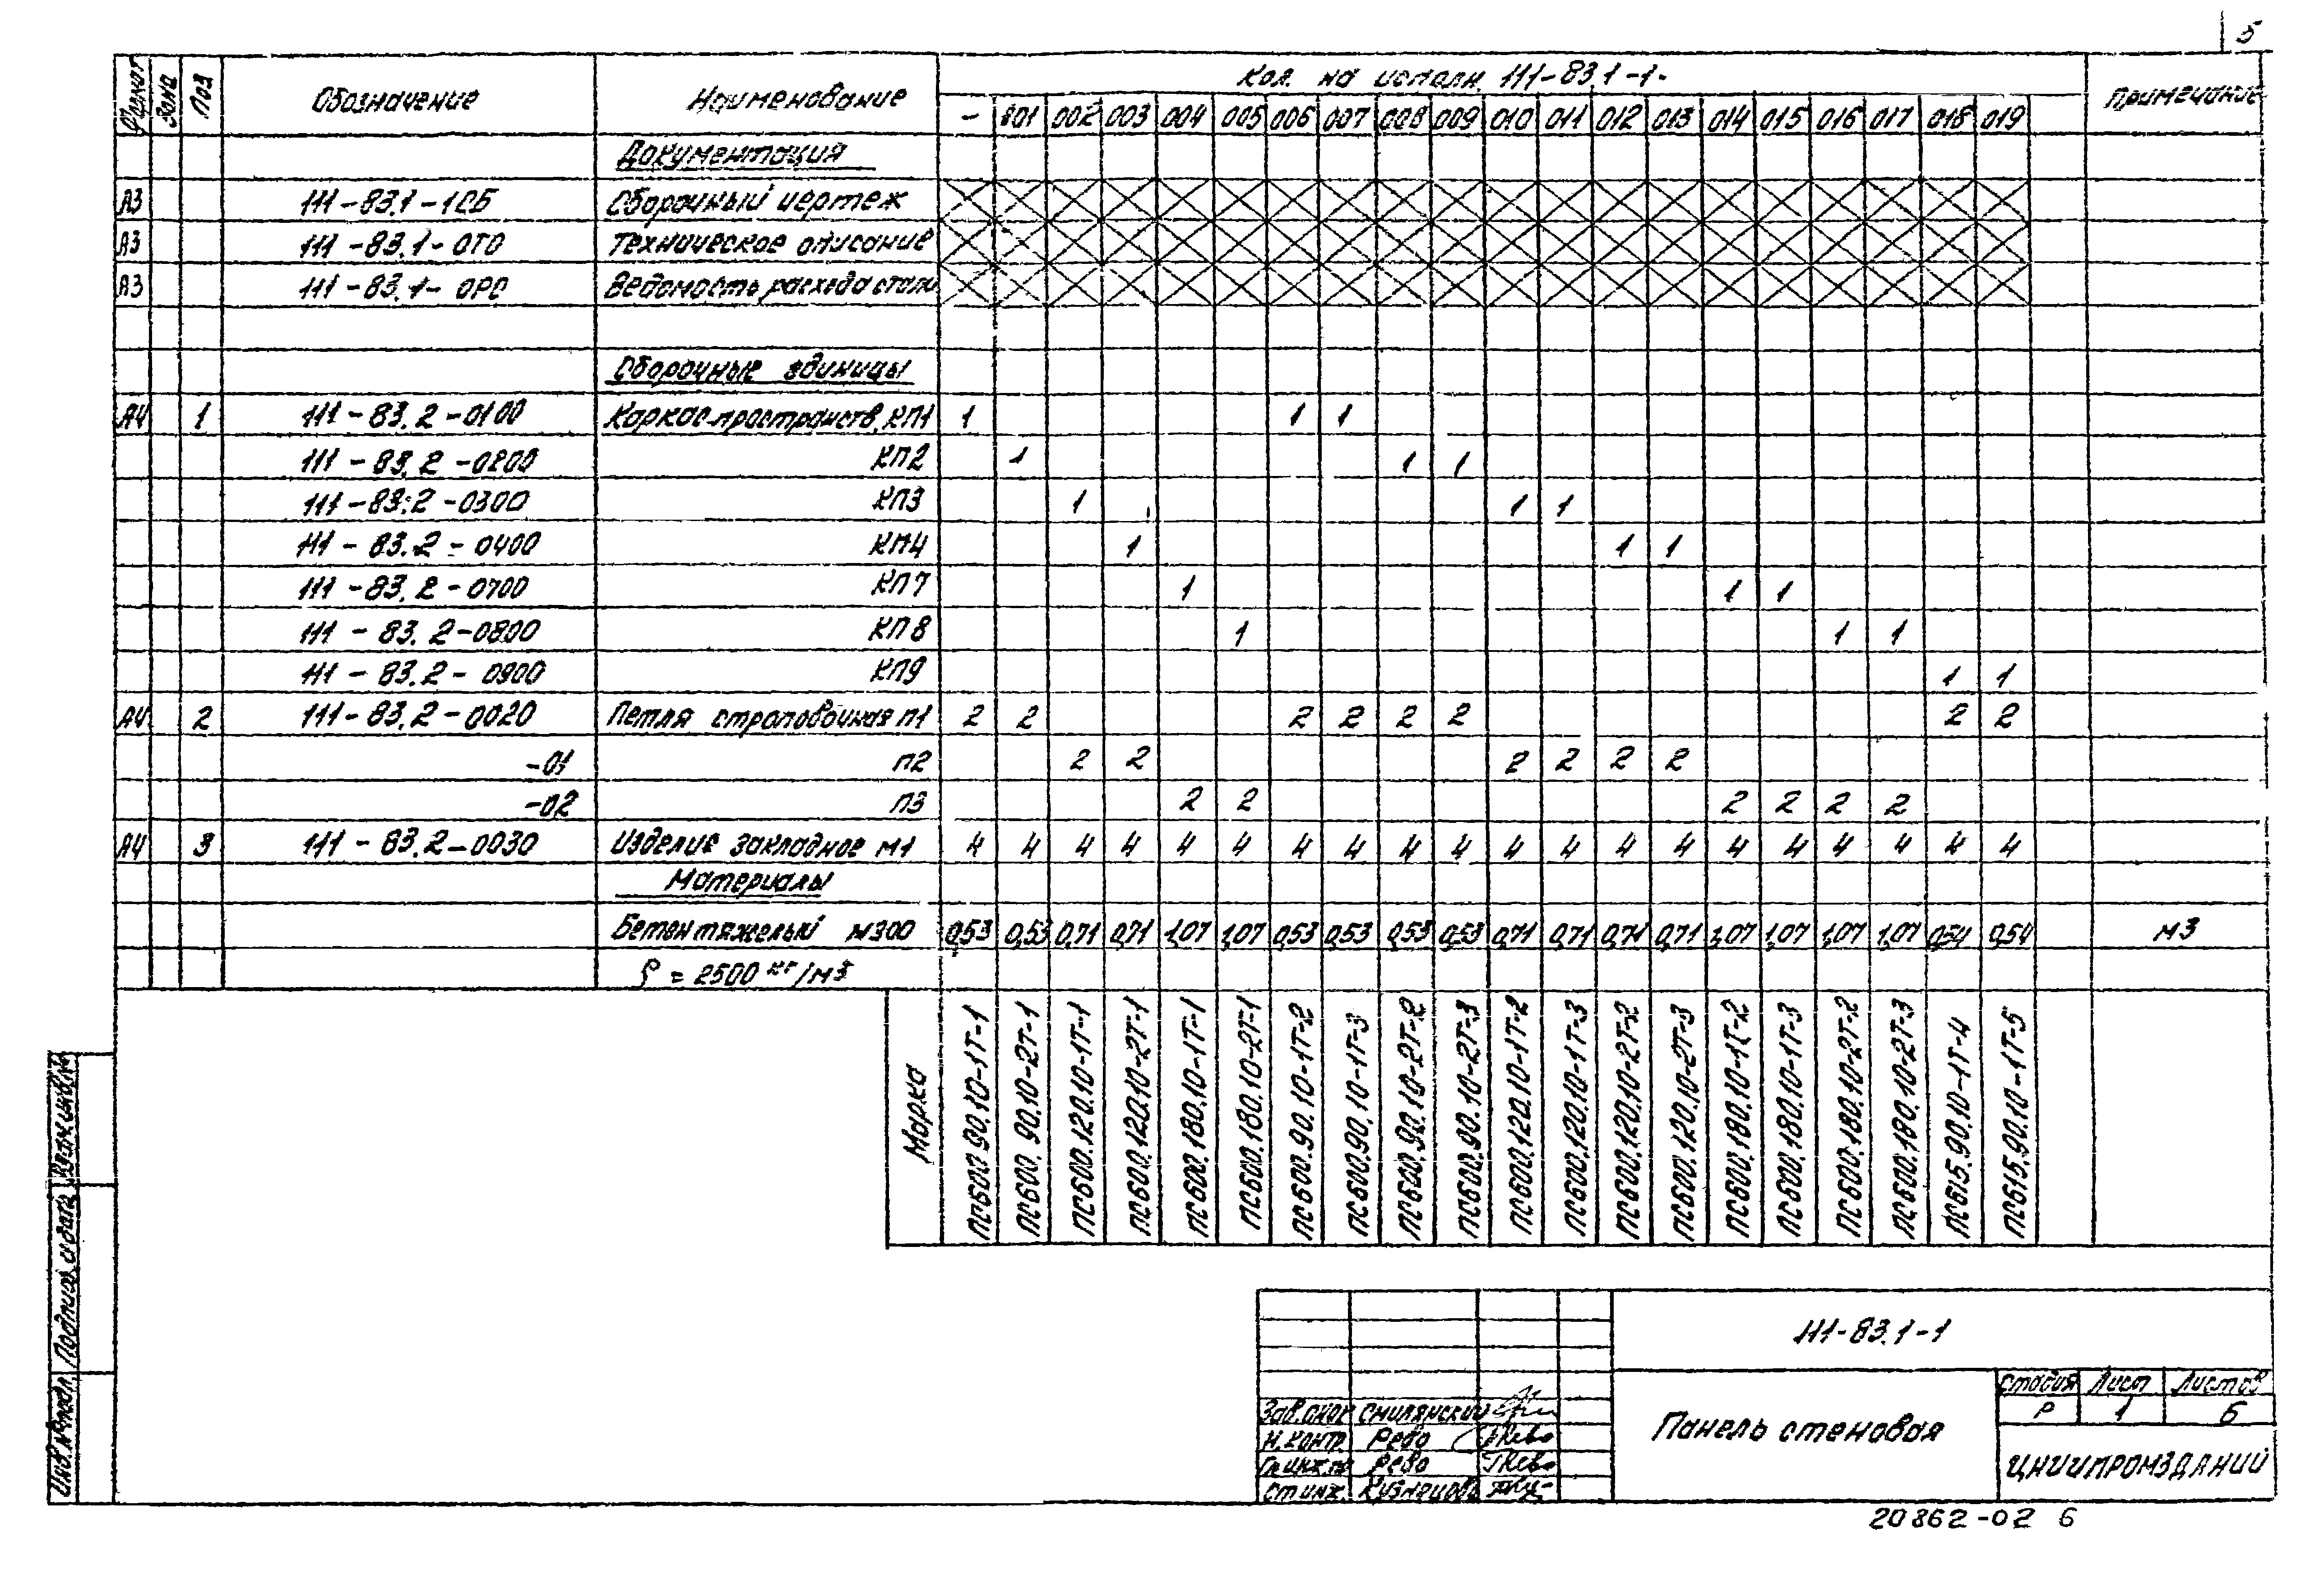 5
Формат Зона Поз Обозначение Наименование Кол. на исполн. 111-83.1-1- Примечание
- 001 002 003 004 005 006 007 008 009 010 011 012 013 014 015 016 017 018 019
Документация
А3 111-83.1-1СБ Сборочный чертеж
А3 111-83.1-0ТО Техническое описание
А3 111-83.1-0РС Ведомость расхода стали
Сборочные единицы
А4 1 111-83.2-0100 Каркас пространств. КП1 1 1 1
111-83.2-0200 КП2 1 1 1
111-83.2-0300 КП3 1 1 1
111-83.2-0400 КП4 1 1 1
111-83.2-0700 КП7 1 1 1
111-83.2-0800 КП8 1 1 1
111-83.2-0900 КП9 1 1
А4 2 111-83.2-0020 Петля строповочная П1 2 2 2 2 2 2 2 2
-01 П2 2 2 2 2 2 2
-02 П3 2 2 2 2 2 2
А4 3 111-83.2-0030 Изделие закладное М1 4 4 4 4 4 4 4 4 4 4 4 4 4 4 4 4 4 4 4 4
Материалы
Бетон тяжелый М300 0,53 0,53 0,71 0,71 1,07 1,07 0,53 0,53 0,53 0,53 0,71 0,71 0,71 0,71 1,07 1,07 1,07 1,07 0,54 0,54 м3
ρ = 2500 кг/м3
Марка
ПС600.90.10-1Т-1
ПС600.90.10-2Т-1
ПС600.120.10-1Т-1
ПС600.120.10-2Т-1
ПС600.180.10-1Т-1
ПС600.180.10-2Т-1
ПС600.90.10-1Т-2
ПС600.90.10-1Т-3
ПС600.90.10-2Т-2
ПС600.90.10-2Т-3
ПС600.120.10-1Т-2
ПС600.120.10-1Т-3
ПС600.120.10-2Т-2
ПС600.120.10-2Т-3
ПС600.180.10-1Т-2
ПС600.180.10-1Т-3
ПС600.180.10-2Т-2
ПС600.180.10-2Т-3
ПС615.90.10-1Т-4
ПС615.90.10-1Т-5
Инв.№ подл. Подпись и дата Взам.инв.№
111-83.1-1
Панель стеновая
Стадия Лист Листов
Р 1 6
ЦНИИПРОМЗДАНИЙ
Зав.отд. Смилянский
Н.контр. Рево
Гл.инж.пр. Рево
Ст.инж. Кузнецова
20862-02 6